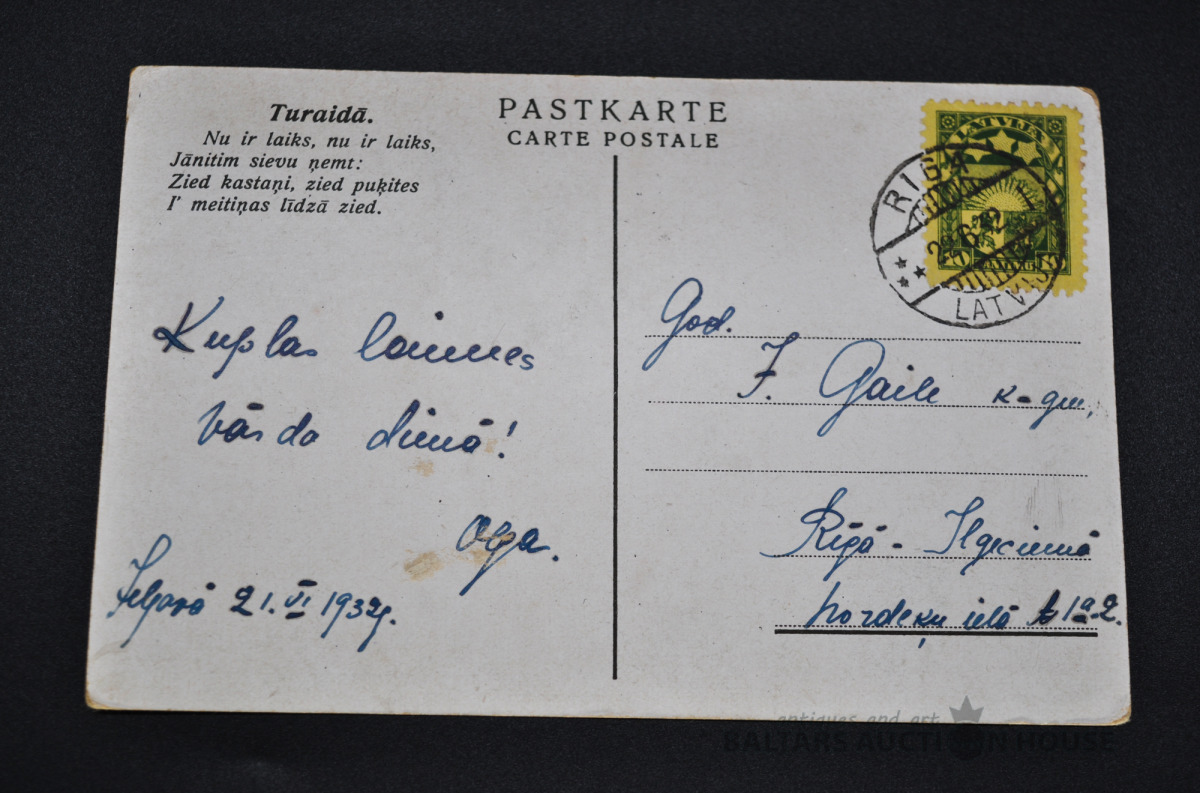 Turaidā.
Nu ir laiks, nu ir laiks,
Jānitim sievu ņemt:
Zied kastaņi, zied puķites
I' meitiņas līdzā zied.
PASTKARTE
CARTE POSTALE
LATVIJA
RIGA
LATVIJA
Kuplas laimes
vārda dienā!
Olga.
Jelgavā 21. VI 1932g.
God.
J. Gaile k-gm,
Rīgā - Ilgeciemā
Nordeķu ielā 1a-2.
antiques and art
BALTARS AUCTION HOUSE